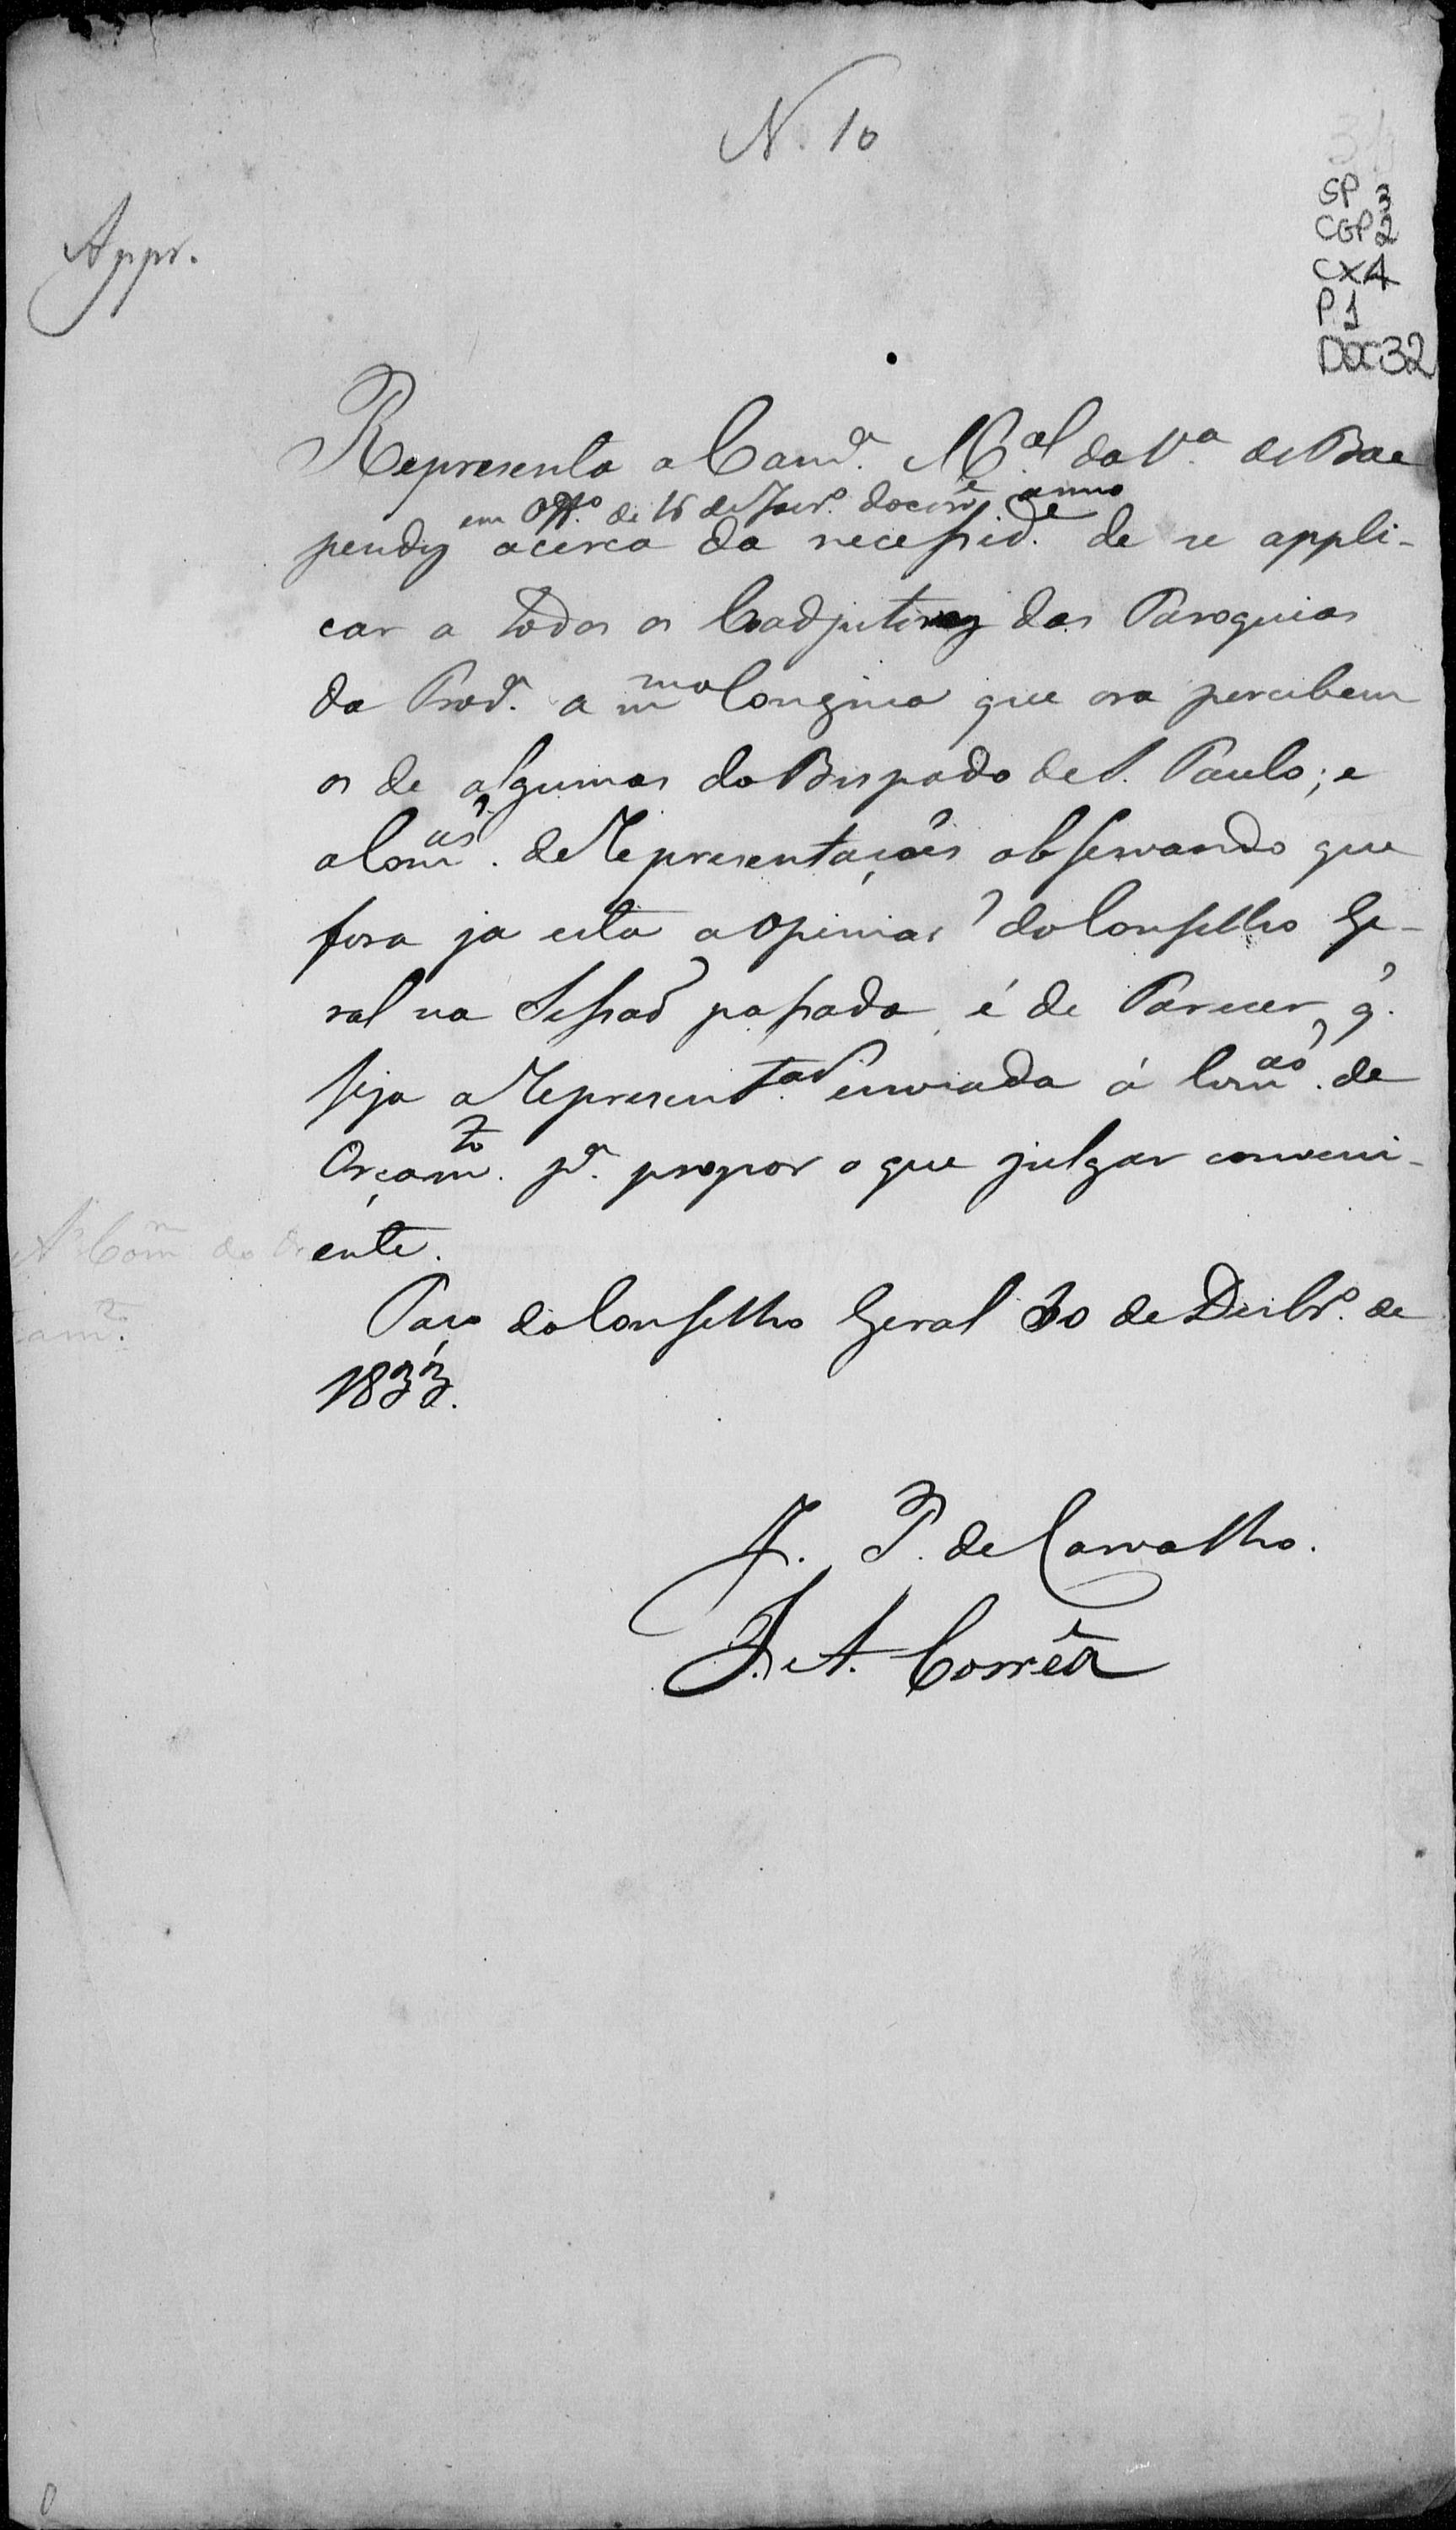 N. 10
SP 3
CGP 2
CX 4
P. 1
DOC 32
Appr.
Representa a Camr.ª M.al da V.ª de Bae
pendy em Off.º de 16 de Fever.º do corr.e anno
acerca da necessid.e de se appli-
car a todos os Coadjutores das Paroquias
da Prov.ª a mma Congrua que ora percebem
os de algumas do Bispado de S. Paulo; e
a Com.ão de Representações observando que
fora ja esta a opinião do Conselho Ge-
ral na Sessão passada, é de Parecer, q.
seja a Represent.tão enviada á Com.ão de
Orçam.to p.ª propor o que julgar conveni-
ente.
A' Com.m do Or
çam.to
Paço do Conselho Geral 30 de Dezbr.º de
1833.
J. P. de Carvalho.
J. A. Corrêa